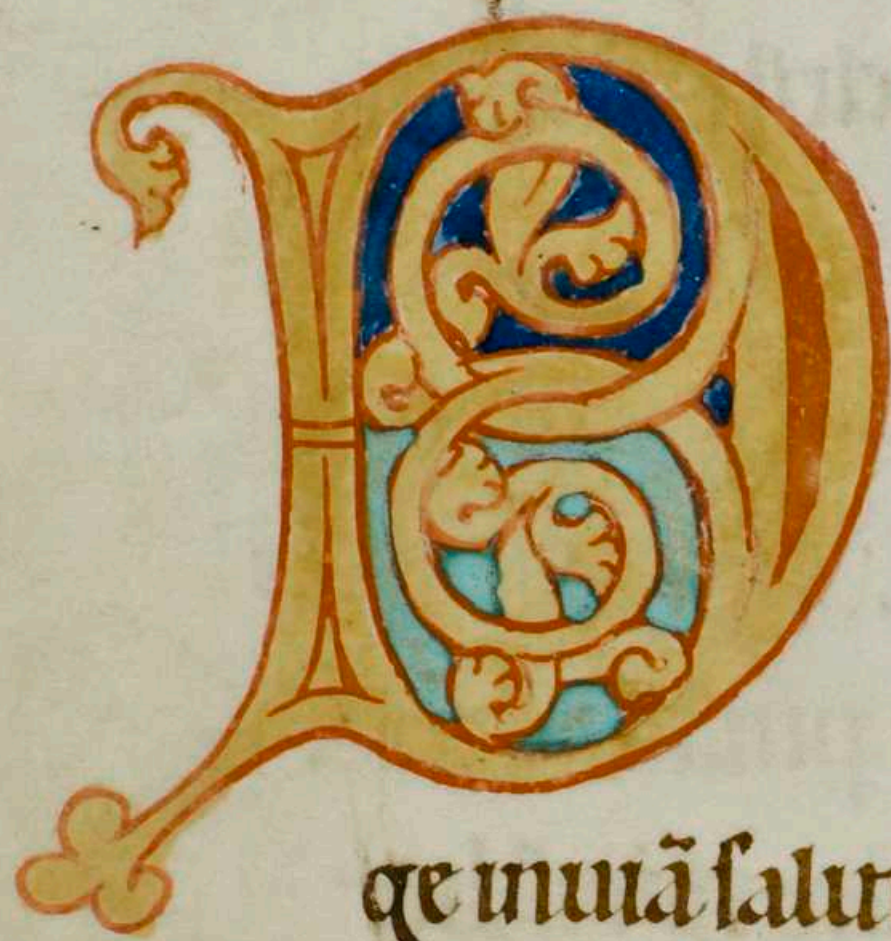 D
ge inuiã ſalut